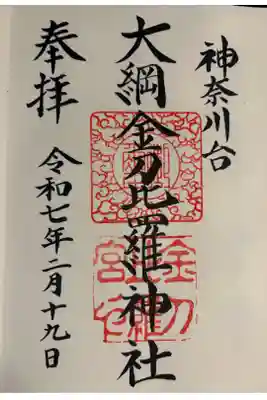 神奈川台
大綱金刀比羅神社
奉拝
令和七年二月十九日